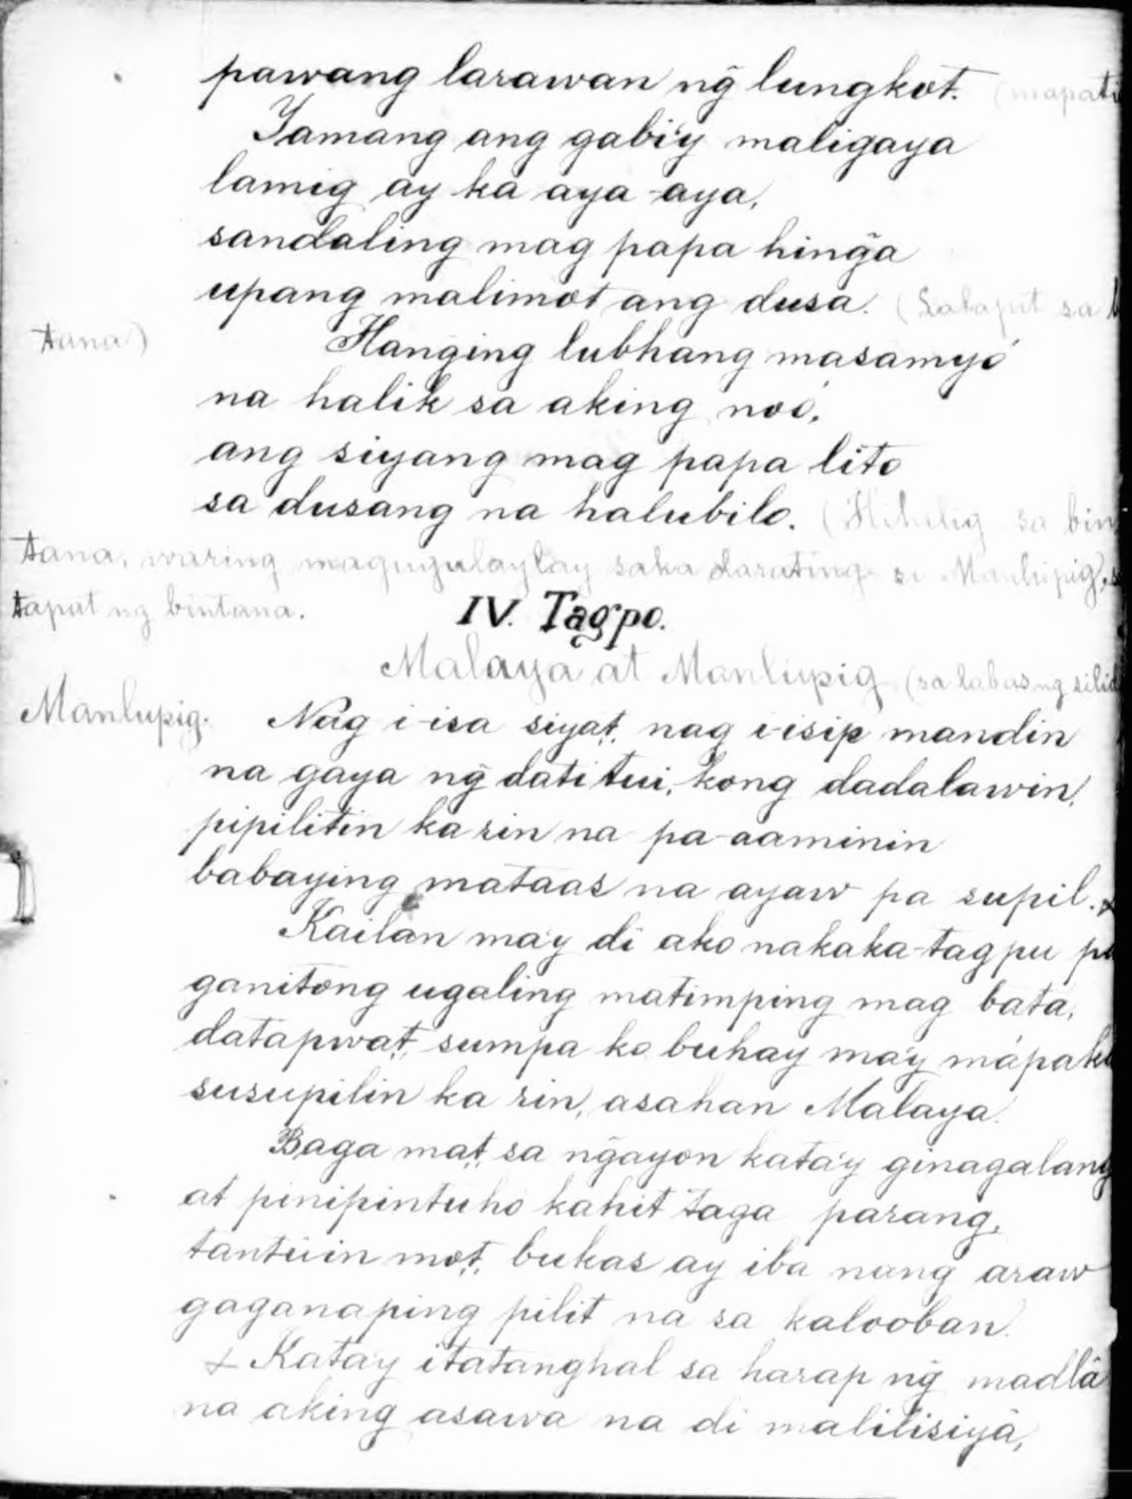 pawang larawan ng̃ lungkot. (mapati
Yamang ang gabi'y maligaya
lamig ay ka aya-aya,
sandaling mag papa hing̃a
upang malimot ang dusa. (Lalapit sa
tana)
Hang̃ing lubhang masamyó
na halik sa aking noó,
ang siyang mag papa lito
sa dusang na halubilo. (Hihilig sa bin
tana, waring magugulaylay saka darating si Manlupig, s
tapat ng bintana.
IV. Tagpo.
Malaya at Manlupig (sa labas ng silid
Manlupig. Nag i-isa siyat, nag i-isip mandin
na gaya ng̃ dati tui, kong dadalawin,
pipilitin ka rin na pa-aaminin
babaying mataas na ayaw pa supil.
Kailan ma'y di ako nakaka-tagpu pa
ganitong ugaling matimping mag bata,
datapwat, sumpa ko buhay ma'y mápak
susupilin ka rin, asahan Malaya.
Baga mat, sa ng̃ayon kata'y ginagalang
at pinipintuho kahit taga parang,
tantuin mot, bukas ay iba nang araw
gaganaping pilit na sa kalooban.
+ Katay itatanghal sa harap ng̃ madlâ
na aking asawa na di malilisiyâ,